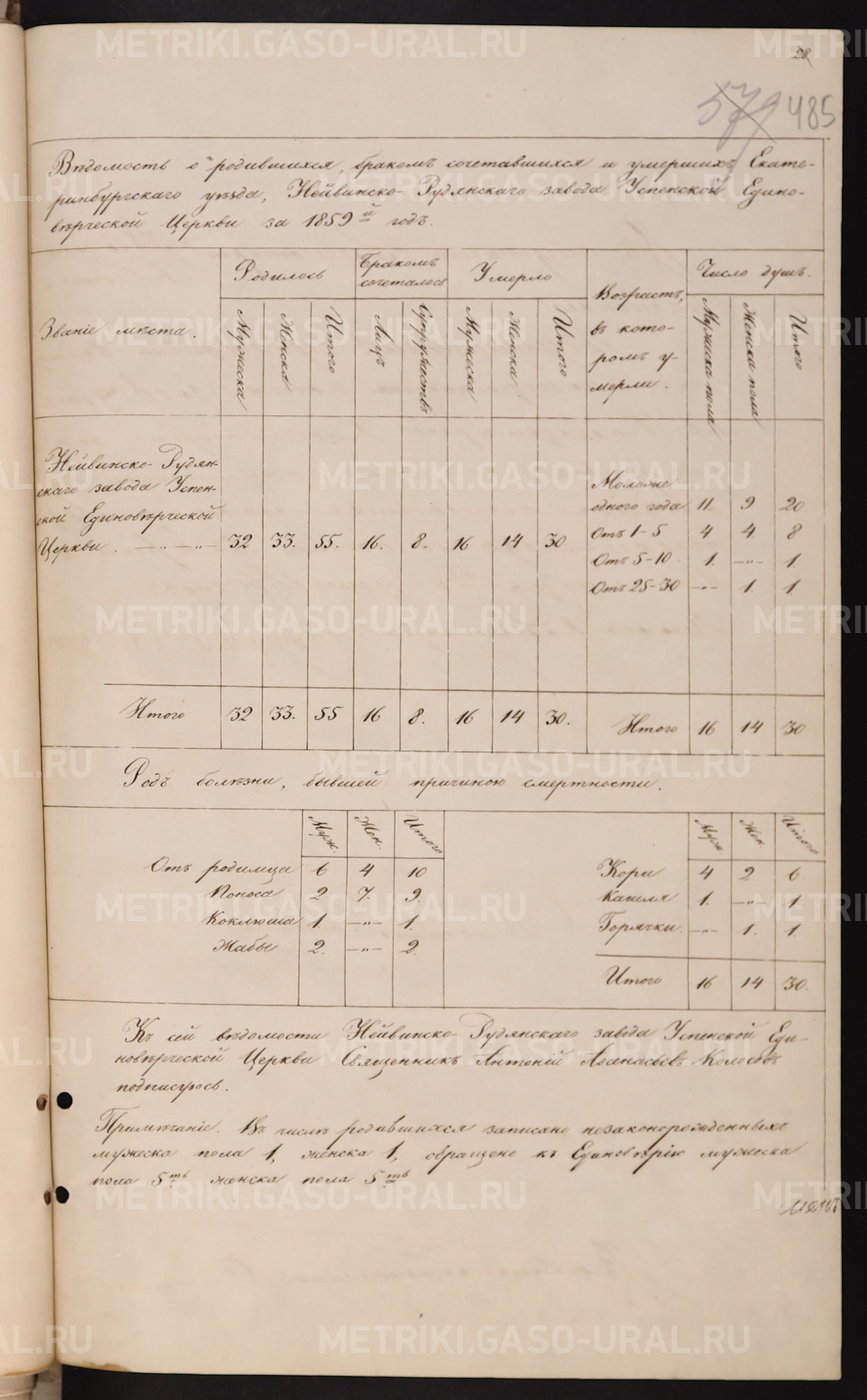 METRIKI.GASO-URAL.RU
28
579 485
Вѣдомость о родившихся, бракомъ сочетавшихся и умершихъ Екате-
ринбургскаго уѣзда, Нейвинско-Рудянскаго завода Успенской Едино-
вѣрческой Церкви за 1859й годъ.
Званіе мѣста. Родилось Бракомъ сочеталось Умерло Возрастъ, въ кото-ромъ у-мерли. Число душъ.
Мужеска Женска Итого Лицъ Супружествъ Мужеска Женска Итого Мужеска пола Женска пола Итого
Нейвинско-Рудян-
скаго завода Успен-
ской Единовѣрческой
Церкви . — „ — „ — 32 33. 55. 16. 8. 16 14 30
Моложе
одного года 11. 9 20
Отъ 1-5 4 4 8
Отъ 5-10 1. —„— 1
Отъ 25-30 —„— 1. 1.
Итого 32 33. 55 16 8. 16 14 30. Итого 16 14 30
Родъ болѣзни, бывшей причиною смертности.
Муж. Жен. Итого Муж. Жен. Итого
Отъ родимца 6 4 10 Кори 4 2 6
Поноса 2 7. 9. Кашля 1. —„— 1
Коклюша 1. —„— 1. Горячки —„— 1. 1.
Жабы 2. —„— 2.
Итого 16 14 30.
Къ сей вѣдомости Нейвинско-Рудянскаго завода Успенской Еди-
новѣрческой Церкви Священникъ Антоній Аѳанасьевъ Колосовъ
подписуюсь.
Примѣчаніе. Въ числѣ родившихся записано незаконорожденныхъ
мужеска пола 1, женска 1, обращено къ Единовѣрію мужеска
пола 5ть женска пола 5ть